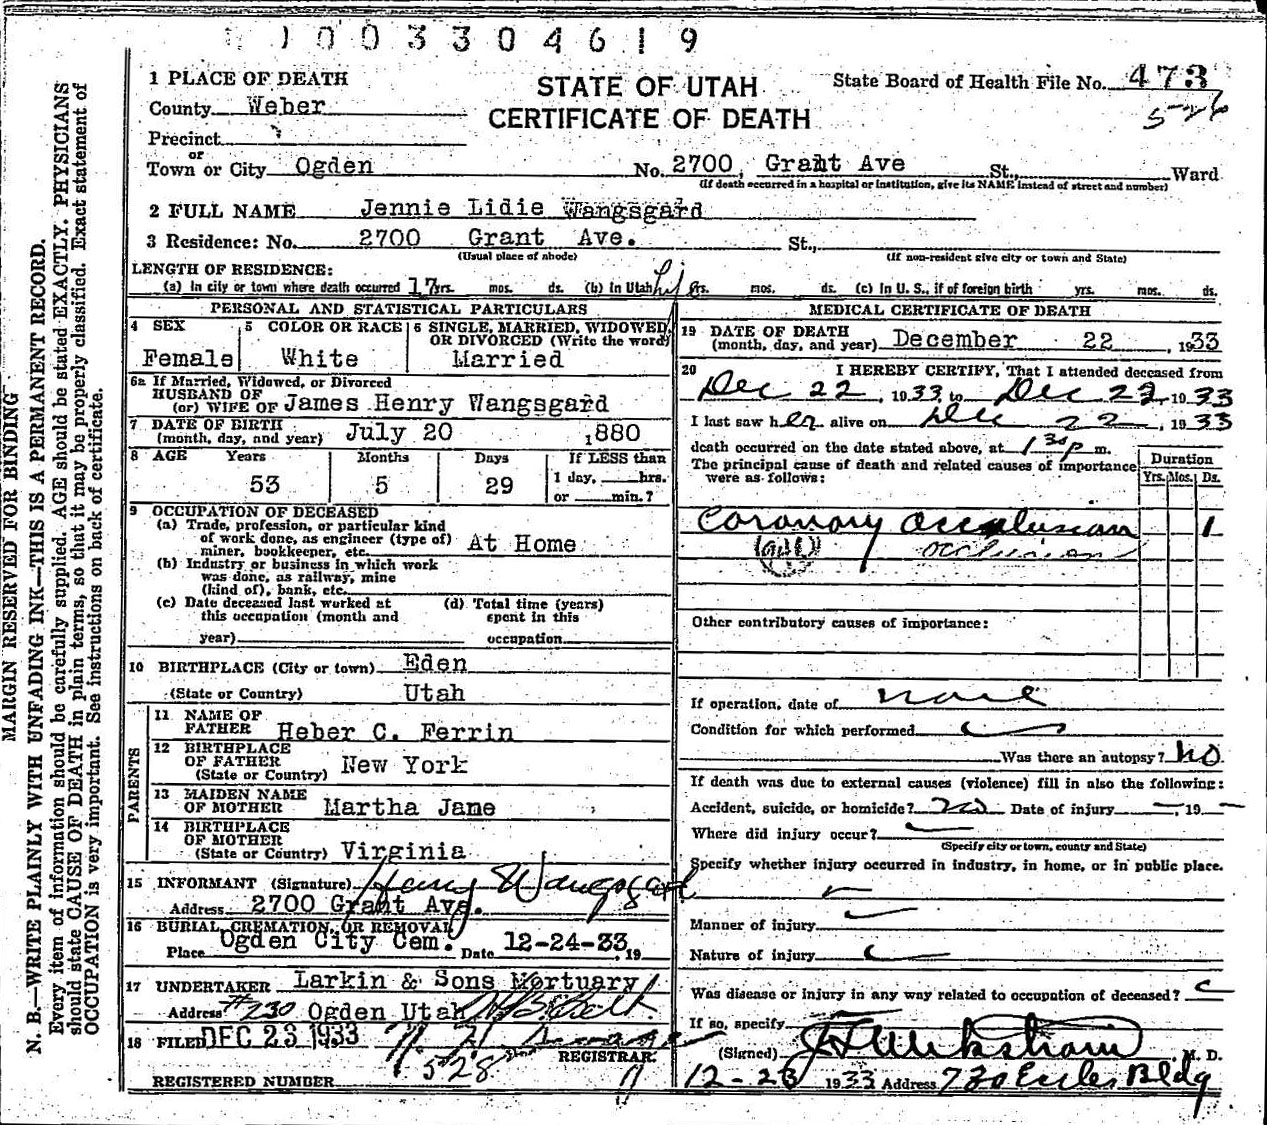 1003304619
1 PLACE OF DEATH
STATE OF UTAH
CERTIFICATE OF DEATH
State Board of Health File No. 473
5-26
County Weber
Precinct
or
Town or City Ogden No. 2700, Grant Ave St., Ward
(If death occurred in a hospital or institution, give its NAME instead of street and number)
2 FULL NAME Jennie Lidie Wangsgard
3 Residence: No. 2700 Grant Ave. St.,
(Usual place of abode) (If non-resident give city or town and State)
LENGTH OF RESIDENCE:
(a) In city or town where death occurred 17 yrs. mos. ds. (b) In Utah Life yrs. mos. ds. (c) In U. S., if of foreign birth yrs. mos. ds.
PERSONAL AND STATISTICAL PARTICULARS
4 SEX
Female
5 COLOR OR RACE
White
6 SINGLE, MARRIED, WIDOWED, OR DIVORCED (Write the word)
Married
6a If Married, Widowed, or Divorced
HUSBAND OF
(or) WIFE OF James Henry Wangsgard
7 DATE OF BIRTH
(month, day, and year) July 20, 1880
8 AGE Years Months Days If LESS than
53 5 29 1 day, hrs.
or min.?
9 OCCUPATION OF DECEASED
(a) Trade, profession, or particular kind
of work done, as engineer (type of)
miner, bookkeeper, etc. At Home
(b) Industry or business in which work
was done, as railway, mine
(kind of), bank, etc.
(c) Date deceased last worked at
this occupation (month and
year)
(d) Total time (years)
spent in this
occupation
10 BIRTHPLACE (City or town) Eden
(State or Country) Utah
PARENTS
11 NAME OF
FATHER Heber C. Ferrin
12 BIRTHPLACE
OF FATHER
(State or Country) New York
13 MAIDEN NAME
OF MOTHER Martha Jane
14 BIRTHPLACE
OF MOTHER
(State or Country) Virginia
15 INFORMANT (Signature) Henry Wangsgard
Address 2700 Grant Ave.
16 BURIAL, CREMATION, OR REMOVAL
Place Ogden City Cem. Date 12-24-33, 19
17 UNDERTAKER Larkin & Sons Mortuary
Address #230 Ogden Utah
18 FILED DEC 23 1933
REGISTRAR.
REGISTERED NUMBER 528
MEDICAL CERTIFICATE OF DEATH
19 DATE OF DEATH
(month, day, and year) December 22, 1933
20 I HEREBY CERTIFY, That I attended deceased from
Dec 22, 1933 to Dec 22, 1933
I last saw her alive on Dec 22, 1933
death occurred on the date stated above, at 1 30 p m.
The principal cause of death and related causes of importance
were as follows:
Duration
Yrs. Mos. Ds.
Coronary Occulusion 1
occlusion
Other contributory causes of importance:
If operation, date of none
Condition for which performed
Was there an autopsy? no
If death was due to external causes (violence) fill in also the following:
Accident, suicide, or homicide? no Date of injury —, 19 —
Where did injury occur?
(Specify city or town, county and State)
Specify whether injury occurred in industry, in home, or in public place.
Manner of injury
Nature of injury
Was disease or injury in any way related to occupation of deceased?
If so, specify
(Signed) M. D.
12-23 1933 Address 730 Eccles Bldg
MARGIN RESERVED FOR BINDING
N. B.—WRITE PLAINLY WITH UNFADING INK—THIS IS A PERMANENT RECORD.
Every item of information should be carefully supplied. AGE should be stated EXACTLY. PHYSICIANS
should state CAUSE OF DEATH in plain terms, so that it may be properly classified. Exact statement of
OCCUPATION is very important. See instructions on back of certificate.